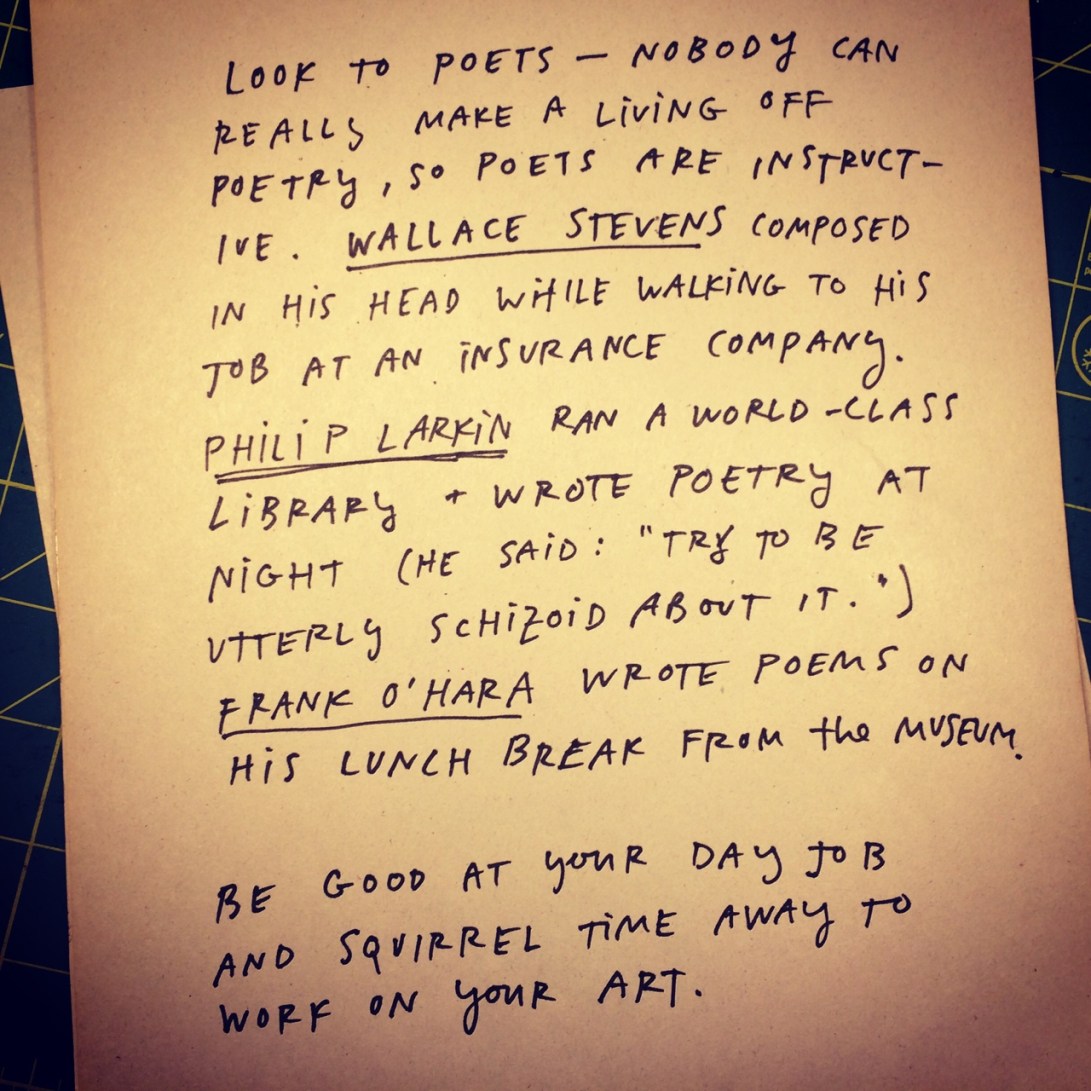 LOOK TO POETS — NOBODY CAN
REALLY MAKE A LIVING OFF
POETRY, SO POETS ARE INSTRUCT-
IVE. WALLACE STEVENS COMPOSED
IN HIS HEAD WHILE WALKING TO HIS
JOB AT AN INSURANCE COMPANY.
PHILIP LARKIN RAN A WORLD-CLASS
LIBRARY + WROTE POETRY AT
NIGHT (HE SAID: "TRY TO BE
UTTERLY SCHIZOID ABOUT IT.")
FRANK O'HARA WROTE POEMS ON
HIS LUNCH BREAK FROM the MUSEUM.
BE GOOD AT YOUR DAY JOB
AND SQUIRREL TIME AWAY TO
WORK ON YOUR ART.